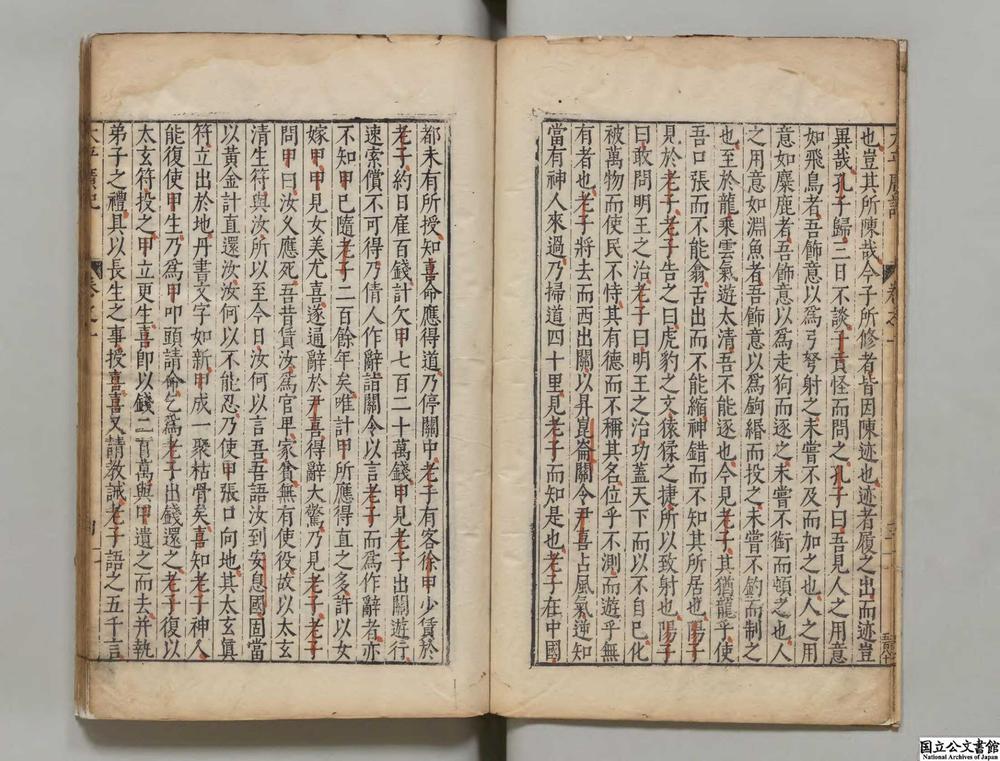 也豈其所陳哉今子所修者皆因陳迹也迹者履之出而迹豈
異哉孔子歸三日不談子貢怪而問之孔子曰吾見人之用意
如飛鳥者吾飾意以爲弓弩射之未嘗不及而加之也人之用
意如麋鹿者吾飾意以爲走狗而逐之未嘗不銜而頓之也人
之用意如淵魚者吾飾意以爲鉤緡而投之未嘗不釣而制之
也至於龍乘雲氣遊太清吾不能逐也今見老子其猶龍乎使
吾口張而不能翕舌出而不能縮神錯而不知其所居也陽子
見於老子老子告之曰虎豹之文猿猱之捷所以致射也陽子
曰敢問明王之治老子曰明王之治功蓋天下而以不自已化
被萬物而使民不恃其有德而不稱其名位乎不測而遊乎無
有者也老子將去而西出關以昇崑崙關令尹喜占風氣逆知
當有神人來過乃掃道四十里見老子而知是也老子在中國
都未有所授知喜命應得道乃停關中老子有客徐甲少賃於
老子約日雇百錢計欠甲七百二十萬錢甲見老子出關遊行
速索償不可得乃倩人作辭詣關令以言老子而爲作辭者亦
不知甲已隨老子二百餘年矣唯計甲所應得直之多許以女
嫁甲甲見女美尤喜遂通辭於尹喜得辭大驚乃見老子老子
問甲曰汝乂應死吾昔賃汝爲官卑家貧無有使役故以太玄
清生符與汝所以至今日汝何以言吾吾語汝到安息國固當
以黃金計直還汝汝何以不能忍乃使甲張口向地其太玄眞
符立出於地丹書文字如新甲成一聚枯骨矣喜知老子神人
能復使甲生乃爲甲叩頭請命乞爲老子出錢還之老子復以
太玄符投之甲立更生喜即以錢二百萬與甲遣之而去并執
弟子之禮具以長生之事授喜喜又請教誡老子語之五千言
太平廣記
卷之一
国立公文書館
National Archives of Japan